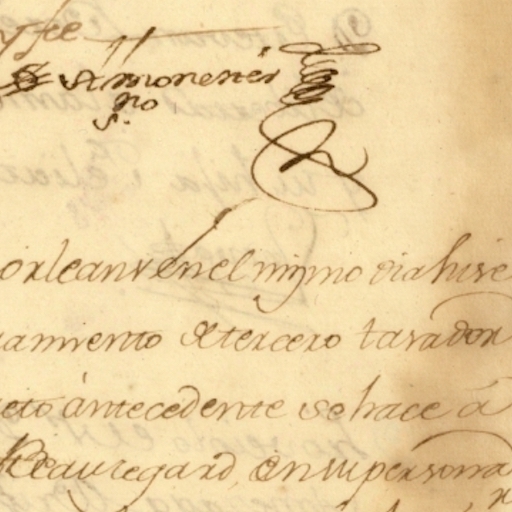 y fee
Almonester
no
s.
orleans en el mismo dia hise
amiento de tercero tasador
eto antecedente se hace á
Beauregard, en su persona